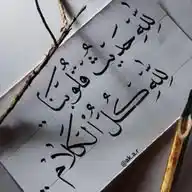 لِلّٰهِ حَدِيثُ قُلُوبِنَا
لِلّٰهِ كُلُّ الْكَلَام
@ak.a.r